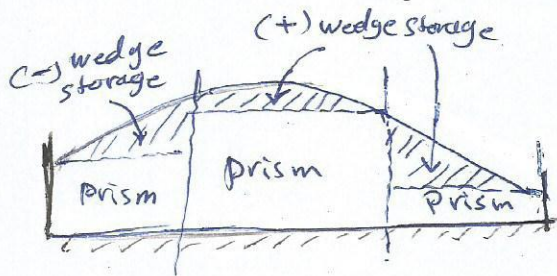 (+) wedge storage
(-) wedge
storage
prism
prism
prism